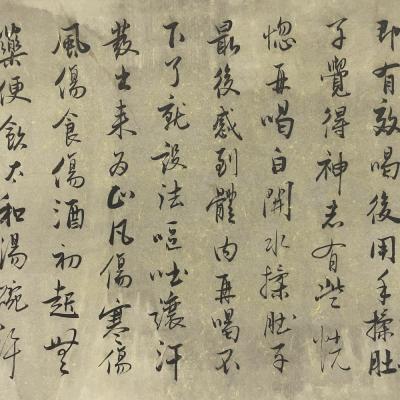 即有效喝後用手揉肚
子覺得神志有些恍
惚再喝白開水揉肚子
最後感到體內再喝不
下了就設法嘔吐讓汗
散出来為止凡傷寒傷
風傷食傷酒初起無
藥便飲太和湯碗許